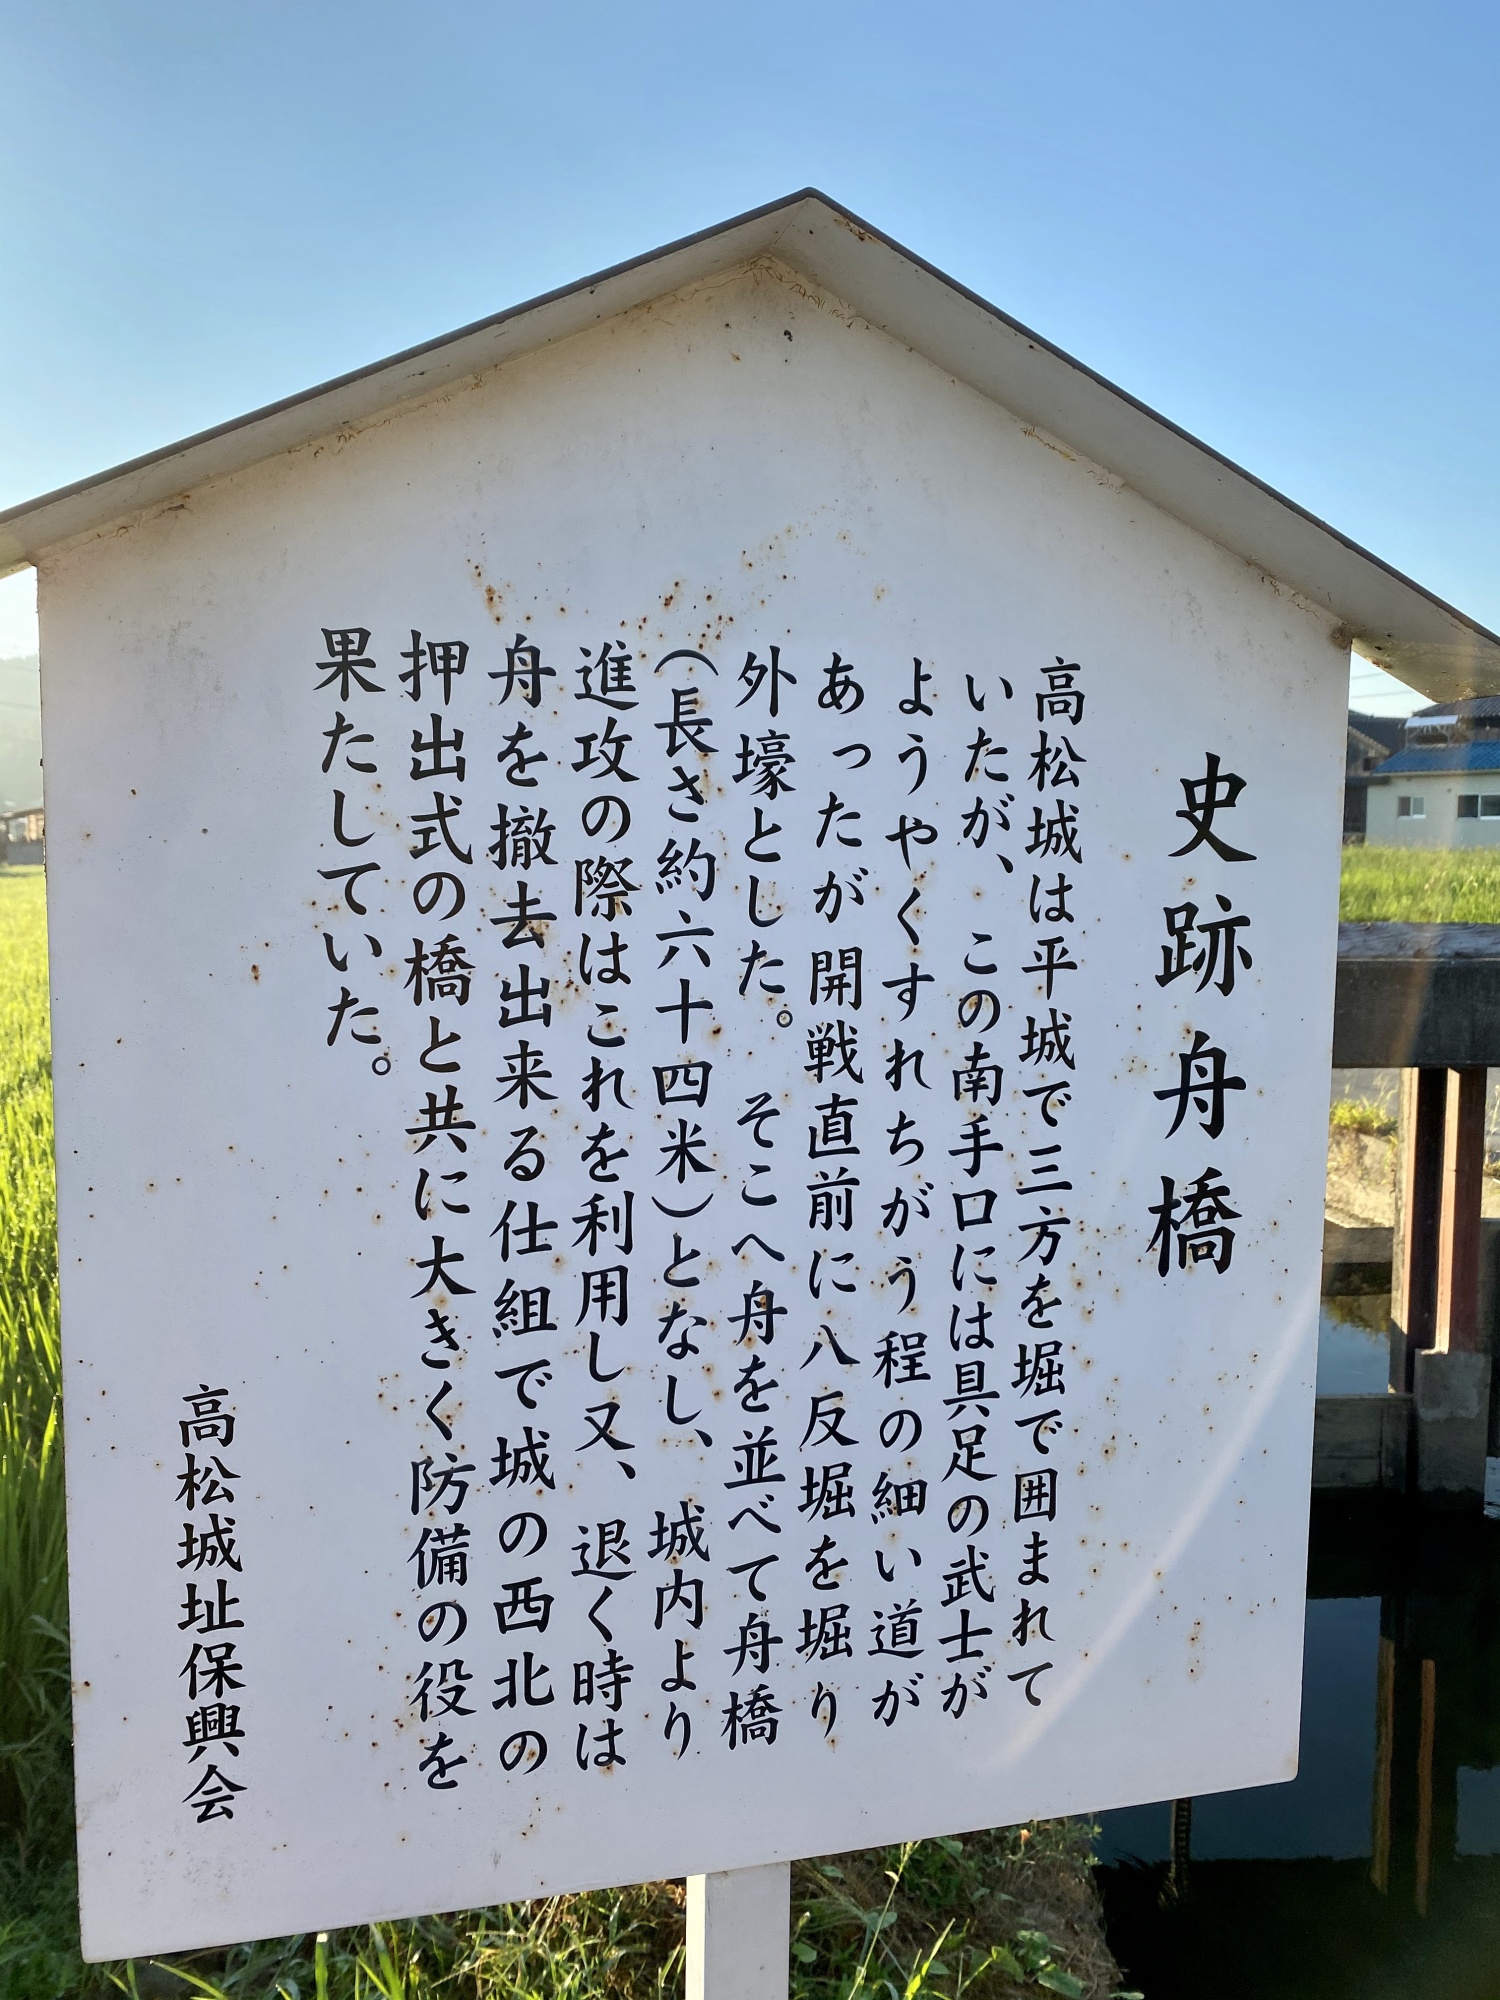 史跡舟橋
高松城は平城で三方を堀で囲まれて
いたが、この南手口には具足の武士が
ようやくすれちがう程の細い道が
あったが開戦直前に八反堀を堀り
外壕とした。そこへ舟を並べて舟橋
（長さ約六十四米）となし、城内より
進攻の際はこれを利用し又、退く時は
舟を撤去出来る仕組で城の西北の
押出式の橋と共に大きく防備の役を
果たしていた。
高松城址保興会